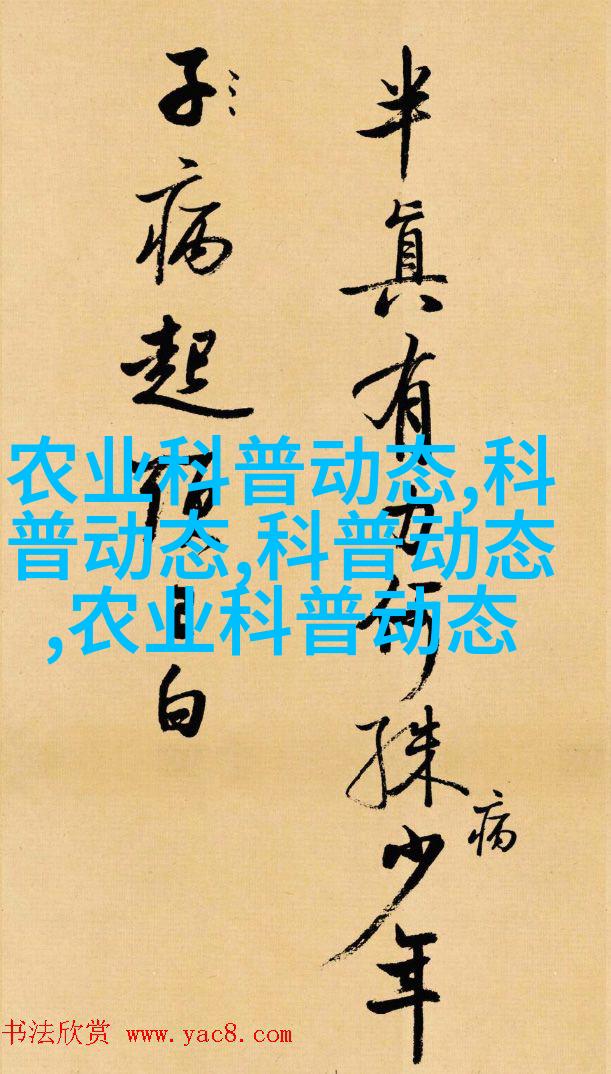 半真有力何殊少年
病
子病起須已白
农业科普动态,科
普动态,科普动态
,农业科普动态
书法欣赏 www.yac8.com